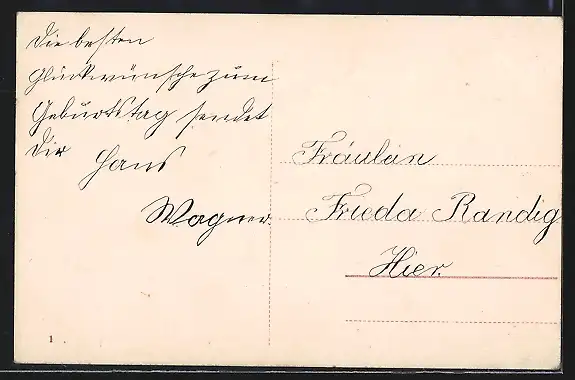 Die besten
Glückwünsche zum
Geburtstag sendet
Dir Hans
Wagner.
Fräulein
Frieda Randig
Hier.
1